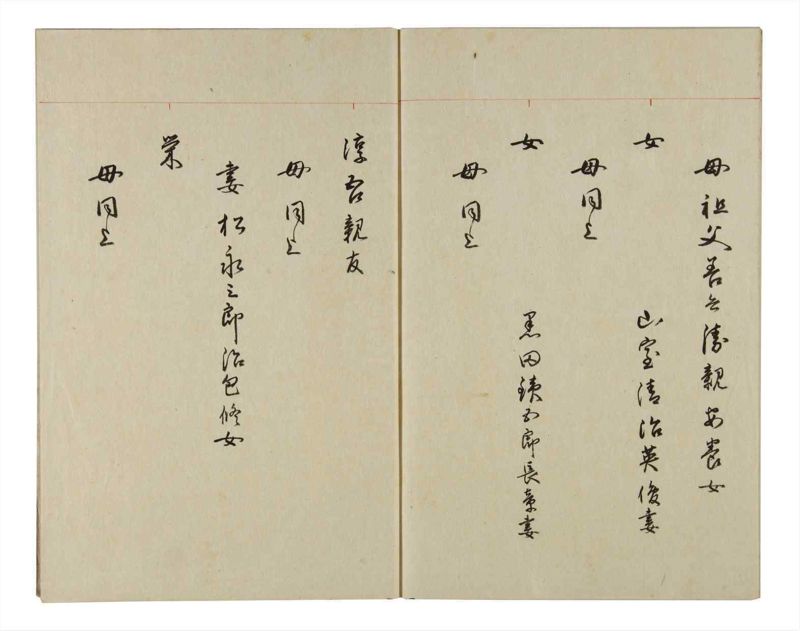 母祖父善兵衛親安養女
女 山室清治英俊妻
母同上
女 黒田鉄五郎長章妻
母同上
淳吾親友
母同上
妻松永三郎治包修女
栄
母同上